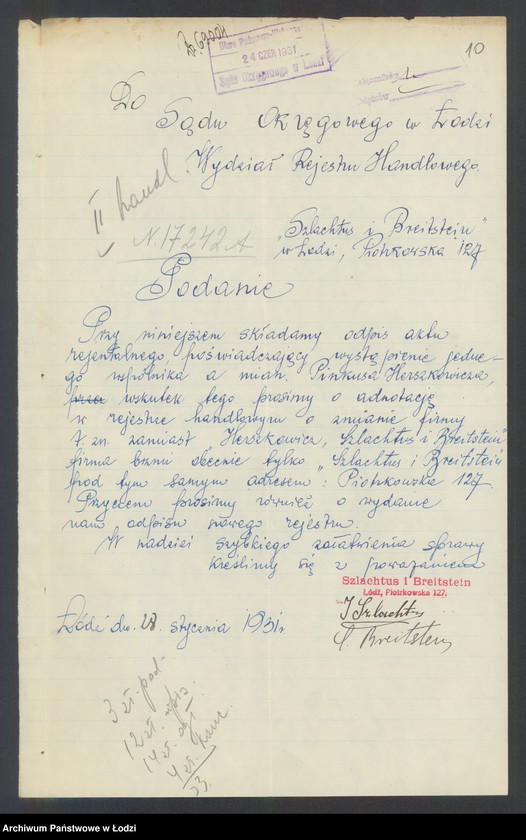 10
24 CZER 1931
Sądu Okręgowego w Łodzi
Do
Sądu Okręgowego w Łodzi
Wydział Rejestru Handlowego.
II handl.
N. 17242 A
"Szlachtus i Breitstein"
w Łodzi, Piotrkowska 127
Podanie
Przy niniejszem składamy odpis aktu
rejentalnego, poświadczający wystąpienie jedne-
go wspólnika a mian. Pinkusa Herszkowicza,
wskutek tego prosimy o adnotację
w rejestrze handlowym o zmianie firmy
t. zn. zamiast "Herszkowicz, Szlachtus i Breitstein"
firma brzmi obecnie tylko "Szlachtus i Breitstein"
pod tym samym adresem: Piotrkowska 127.
Przyczem prosimy również o wydanie
nam odpisu nowego rejestru.
W nadziei szybkiego załatwienia sprawy
kreślimy się z poważaniem
Szlachtus i Breitstein
Łódź, Piotrkowska 127.
I Szlachtus
Breitstein
Łódź dn. 28 stycznia 1931 r.
3 zł. pod.
12 zł. wpis.
14 zł. ogł.
4 zł. kanc.
33.
Archiwum Państwowe w Łodzi